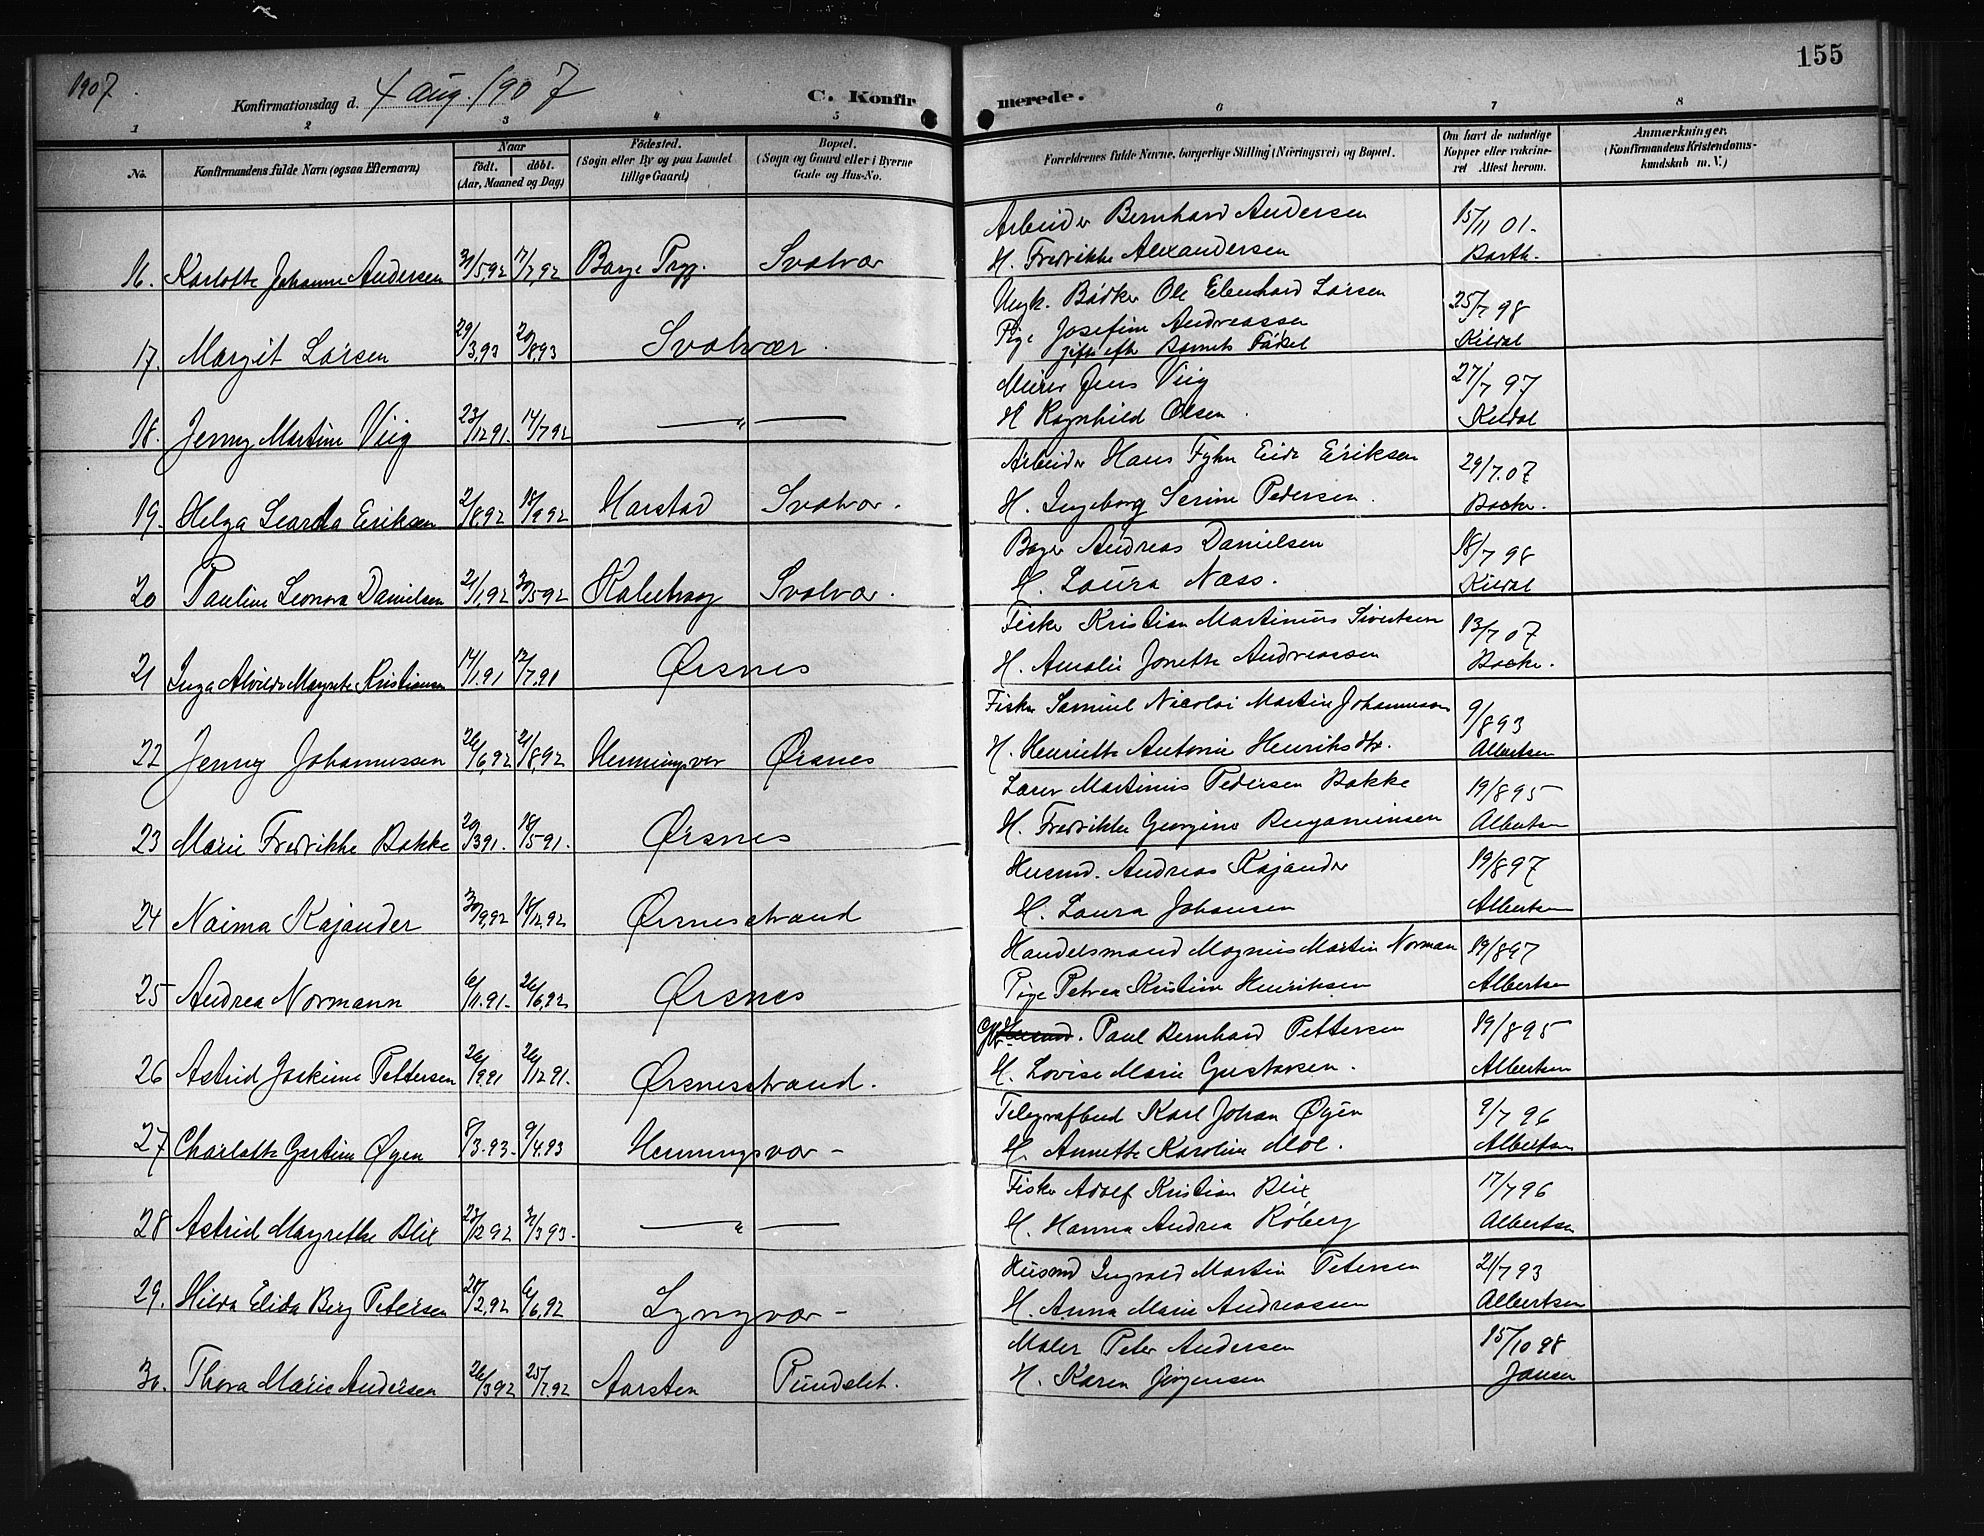 1907
155
Konfirmationsdag d. 4 Aug. 1907
C. Konfirmerede.
1 2 3 4 5 6 7 8
No.
Konfirmandens fulde Navn (ogsaa Efternavn)
Naar
født. døbt.
(Aar, Maaned og Dag)
Fødested.
(Sogn eller By og paa Landet tillige Gaard)
Bopæl.
(Sogn og Gaard eller i Byerne Gade og Hus-No.
Forældrenes fulde Navne, borgerlige Stilling (Næringsvei) og Bopæl.
Om havt de naturlige Kopper eller vaccineret Attest herom.
Anmærkninger.
(Konfirmandens Kristendomskundskab m. V.)
Arbeider Bernhard Andersen 15/11 01.
16. Karlotte Johanne Andersen 31/5,92 17/7,92 Borge Prgj. Svolvær H. Fredrikke Alexandersen Barth.
Ungk. Bødker Ole Edenhard Larsen 25/7 98
17. Margit Larsen 29/3,93 20/8,93 Svolvær Pige Josefine Andreassen Kildal
gift efter Barnets Fødsel
Meier Jens Viig 27/7 97
18. Jenny Martine Viig 23/12 91. 14/7 92 — " — H Ragnhild Olsen Kildal
Arbeider Hans Fyhn Eide Eriksen 29/7.07
19. Helga Eriksen 2/8,92 18/9 92 Harstad Svolvær. H. Ingeborg Serine Pedersen. Backe.
Bager Andreas Danielsen 18/7 98
20 Pauline Leonora Danielsen 21/1,92 30/5 92 Kabelvaag Svolvær. H. Laura Næss. Kildal
Fisker Kristian Martinius Sivertsen 13/7 07
21 Inga Alvilde Margrete Kristiansen 14/1.91 12/7.91 Ørsnes H. Amalie Jonette Andreassen Backe.
Fisker Samuel Nicolai Martin Johannessen 9/8 93
22 Jenny Johannessen 26/6,92 21/8,92 Henningsvær Ørsnes H. Henriette Antonie Henriksdtr. Albertsen
Lærer Martinius Pedersen Bakke 19/8 95
23 Marie Fredrikke Bakke 20/3 91. 18/5 91. Ørsnes H. Fredrikke Georgine Benjaminsen Albertsen
Husmd. Andreas Kajander 19/8 97
24 Naima Kajander 30/9,92 18/12,92 Ørsnesstrand H. Laura Johansen Albertsen
Handelsmand Magnus Martin Norman 19/8 97
25 Andrea Normann 6/11.91. 26/6,92 Ørsnes Pige Petrea Kristine Henriksen Albertsen
Paul Bernhard Pettersen 19/8 95
26 Astrid Joakime Pettersen 26/9,91 26/12 91. Ørsnesstrand. H. Lovise Marie Gustavsen. Albertsen
Telegrafbud Karl Johan Øyen 9/7 96
27 Charlotte Gertine Øyen 8/3.93. 9/4.93 Henningsvær — H. Annette Karoline Moe. Albertsen
Fisker Adolf Kristian Blix 17/7 96
28 Astrid Margrethe Blix 23/12 92 31/3 93. — " — H. Hanna Andrea Røberg Albertsen
Husmd Ingvald Martin Petersen 21/7 93
29. Hilda Elida Berg Petersen 28/2,92 6/6,92 Lyngvær — H. Anna Marie Andreassen Albertsen
Maler Peter Andersen 15/10 98
30. Thora Marie Andersen 26/3 92 25/7.92 Aarsten Pundslet. H. Karen Jørgensen